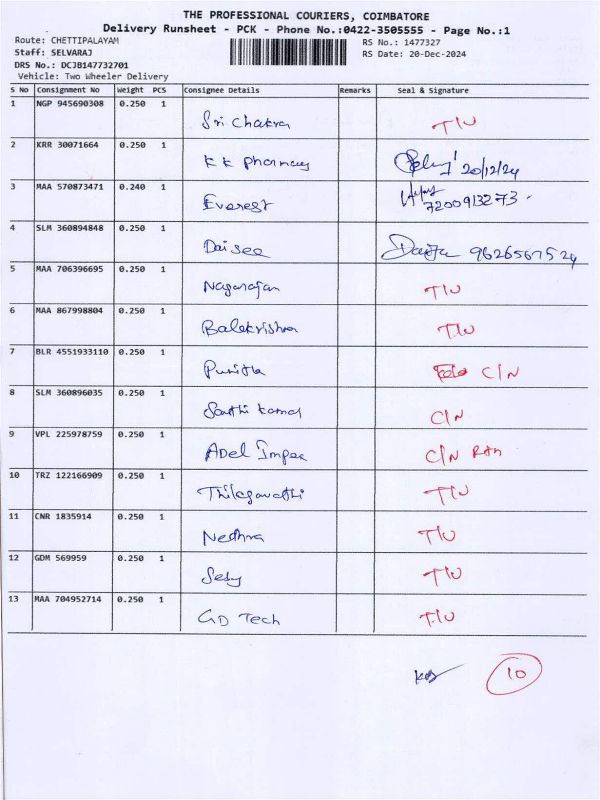 THE PROFESSIONAL COURIERS, COIMBATORE
Delivery Runsheet - PCK - Phone No.:0422-3505555 - Page No.:1
Route: CHETTIPALAYAM RS No.: 1477327
Staff: SELVARAJ RS Date: 20-Dec-2024
DRS No.: DCJB147732701
Vehicle: Two Wheeler Delivery
S No Consignment No Weight PCS Consignee Details Remarks Seal & Signature
1 NGP 945690308 0.250 1 Sri Chakra T/U
2 KRR 30071664 0.250 1 KK Pharmacy 20/12/24
3 MAA 570873471 0.240 1 Everest 7200913273
4 SLM 360894848 0.250 1 Daisee 9626567524
5 MAA 706396695 0.250 1 Nagarajan T/U
6 MAA 867998804 0.250 1 Balakrishna T/U
7 BLR 4551933110 0.250 1 Punitha C/N
8 SLM 360896035 0.250 1 C/N
9 VPL 225978759 0.250 1 Adel Impex C/N
10 TRZ 122166909 0.250 1 Thilagavathi T/U
11 CNR 1835914 0.250 1 Nedhra T/U
12 GDM 569959 0.250 1 T/U
13 MAA 704952714 0.250 1 GD Tech T/U
10